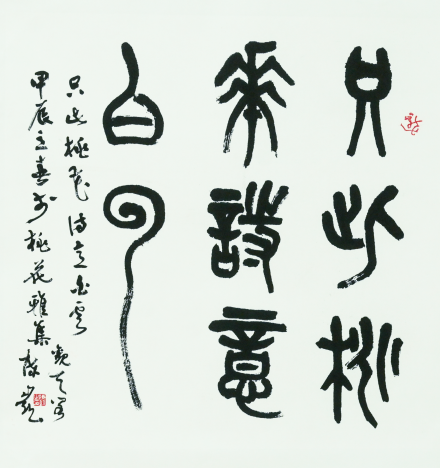 只此桃
花詩意
白云
只此桃花诗意白云
甲辰立春于桃花雅集